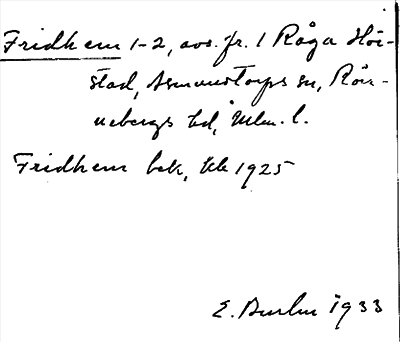 Fridhem 1-2, avs. fr. 1 Råga Hör-
stad, Asmundtorps sn, Rön-
nebergs hd, Mlm. l.
Fridhem bek, Kb 1925
E. 1933